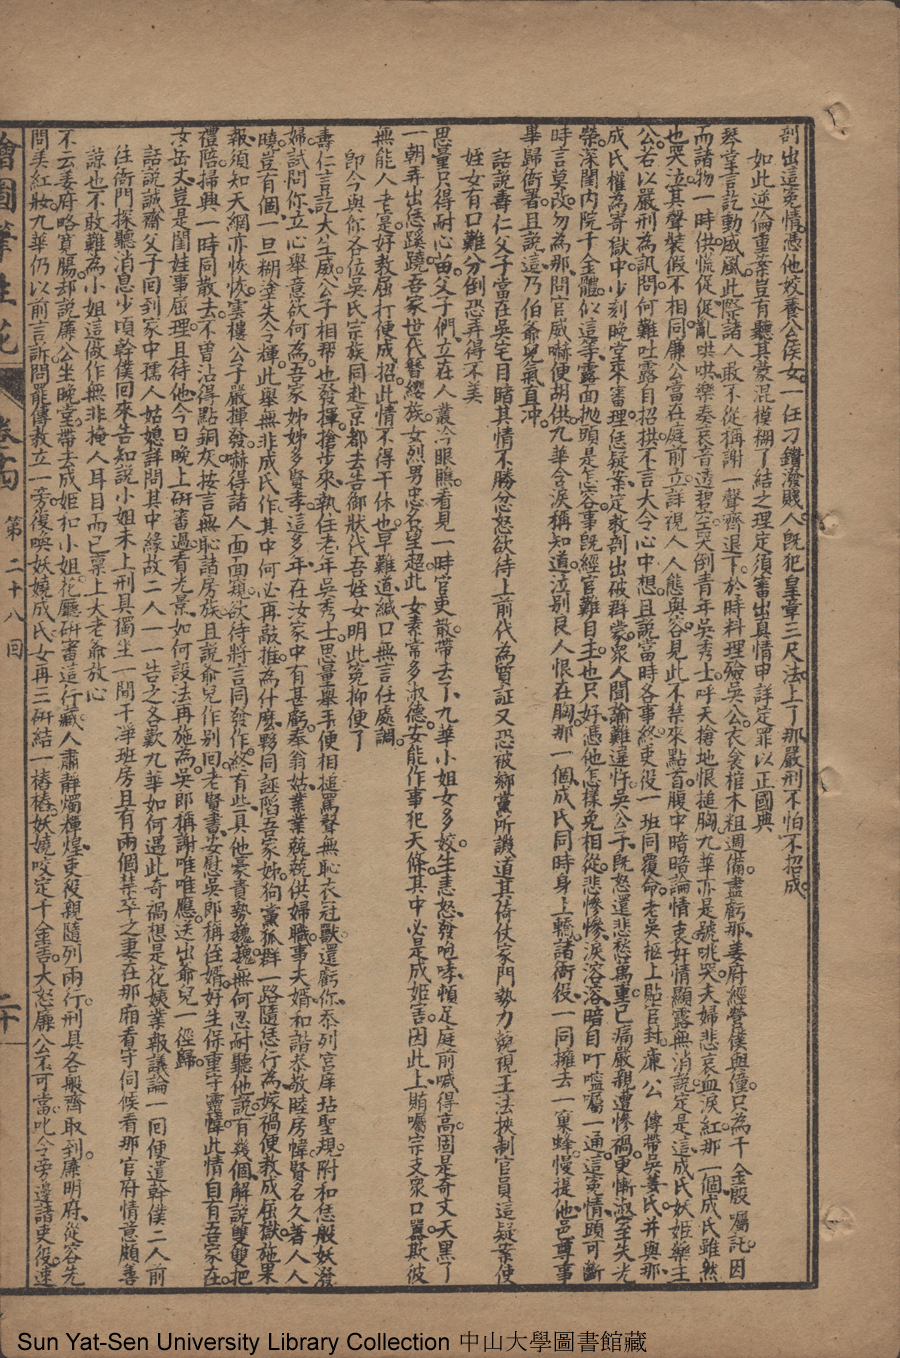 剖出這冤情憑他姣養公侯女一任刁鑽潑賤人既犯皇章三尺法上了那嚴刑不怕不招成
如此逆倫重案豈肯聽其蒙混模糊了結之理定須審出真情申詳定罪以正國典
琴堂言訖動威風此際諸人敢不從稱謝一聲齊退下於時料理殮吳公衣衾棺木粗週備盡虧那姜府經營僕與僮只為千金殷囑託因
而諸物一時供慌促促亂哄哄樂奏哀音透碧空哭倒青年吳秀士呼天搶地恨搥胸九華亦是號咷哭夫婦悲哀血淚紅那一個成氏雖然
也哭泣其聲裝假不相同廉公當在庭前立詳視人人態與容見此不禁來點首腹中暗暗論情衷奸情顯露無消說定是這成氏妖姬藥主
公若以嚴刑為訊問何難吐露自招拱不言大令心中想且說當時各事終吏役一班同覆命老吳柩上貼官封廉公 傳帶吳姜氏并與那
成氏權為寄獄中少刻晚堂來審理恁疑案定教剖出破群蒙眾人聞諭難違忤吳公子既怒還悲愁萬重已痛嚴親遭慘禍更慚淑室失光
榮深閨內院千金體似這等露面拋頭是怎容事既經官難自主也只好憑他怎樣免相從悲慘慘淚溶溶暗自叮嚀囑一通這冤情頭可斷
時言莫改勿為那問官威嚇便胡供九華含淚稱知道泣别良人恨在胸那一個成氏同時身上轎諸衙役一同擁去一窠蜂慢提他邑尊事
畢歸衙署且說這乃伯爺兒氣直冲
話説壽仁父子當在吳宅目睹其情不勝忿怒欲待上前代為質証又恐被鄉黨所譏道其倚仗家門勢力藐視王法挾制官員這疑案使
姪女有口難分倒恐弄得不美
思量只得耐心苗父子們立在人叢冷眼瞧看見一時官吏散帶去了九華小姐女多姣生恚怒發咆哮頓足庭前喊得高固是奇丈天黑了
一朝弄出恁蹊蹺吾家世代簪纓族女烈男忠名望超此女素常多淑德安能作事犯天條其中必是成姬害因此上賄囑宗支衆口囂欺彼
無能人老寔好教屈打便成招此情不得干休也早難道緘口無言任處調
即今與你各位吳氏宗族同赴京都去告御狀代吾姪女明此冤抑便了
壽仁言訖大生威公子相帮也發揮搶步來執住老年吳秀士思量舉手便相搥罵聲無恥衣冠獸還虧你忝列宮庠玷聖規附和恁般妖潑
婦試問你立心舉意欲何為吾家姊姊多賢孝這多年在汝家中有甚虧奉翁姑業業兢兢供婦職事夫婿和和諧恭敬睦房幃賢名久著人人
曉豈有個一旦糊塗失令輝此舉無非成氏作其中何必再敲推為什麽夥同誣陷吾家姊狗黨狐群一路隨恁行為嫁禍便教成屈獄施果
報須知天網亦恢恢雲樓公子嚴揮發嚇得諸人面面窺欲待將言同發作終有些具他豪貴勢巍巍無何忍耐聽他說有幾個解說雙雙把
禮陪掃興一時同散去不曽沾得點銅灰按言無恥諸房族且說爺兒作别回老賢書安慰吳郎稱侄婿好生保重守靈幃此情自有吾家在
汝岳丈豈是閨娃事屈理且待他今日晚上硏審過看光景如何設法再施為吳郎稱謝唯唯應送出爺兒一徑歸
話說誠齋父子回到家中孺人姑媳詳問其中緣故二人一一告之各歎九華如何遇此奇禍想是花姨業報議論一回便遣幹僕二人前
往衙門探聽消息少頃幹僕回來告知說小姐未上刑具獨坐一間干淨班房且有兩個禁卒之妻在那廂看守伺候看那官府情意頗善
諒也不敢難為小姐這做作無非掩人耳目而已禀上大老爺放心
不云姜府略寬腸却說廉公坐晚堂帶去成姬和小姐花廳硏審這行藏人肅静燭輝煌吏役親隨列兩行刑具各般齊取到廉明府從容先
問美紅妝九華仍以前言訴問罷傳教立一旁復喚妖嬈成氏女再三硏結一樁樁妖嬈咬定千金害大怒廉公不可當叱令旁邊諸吏役速
繪圖筆生花 卷十四 第二十八回 二十
Sun Yat-Sen University Library Collection 中山大學圖書館藏